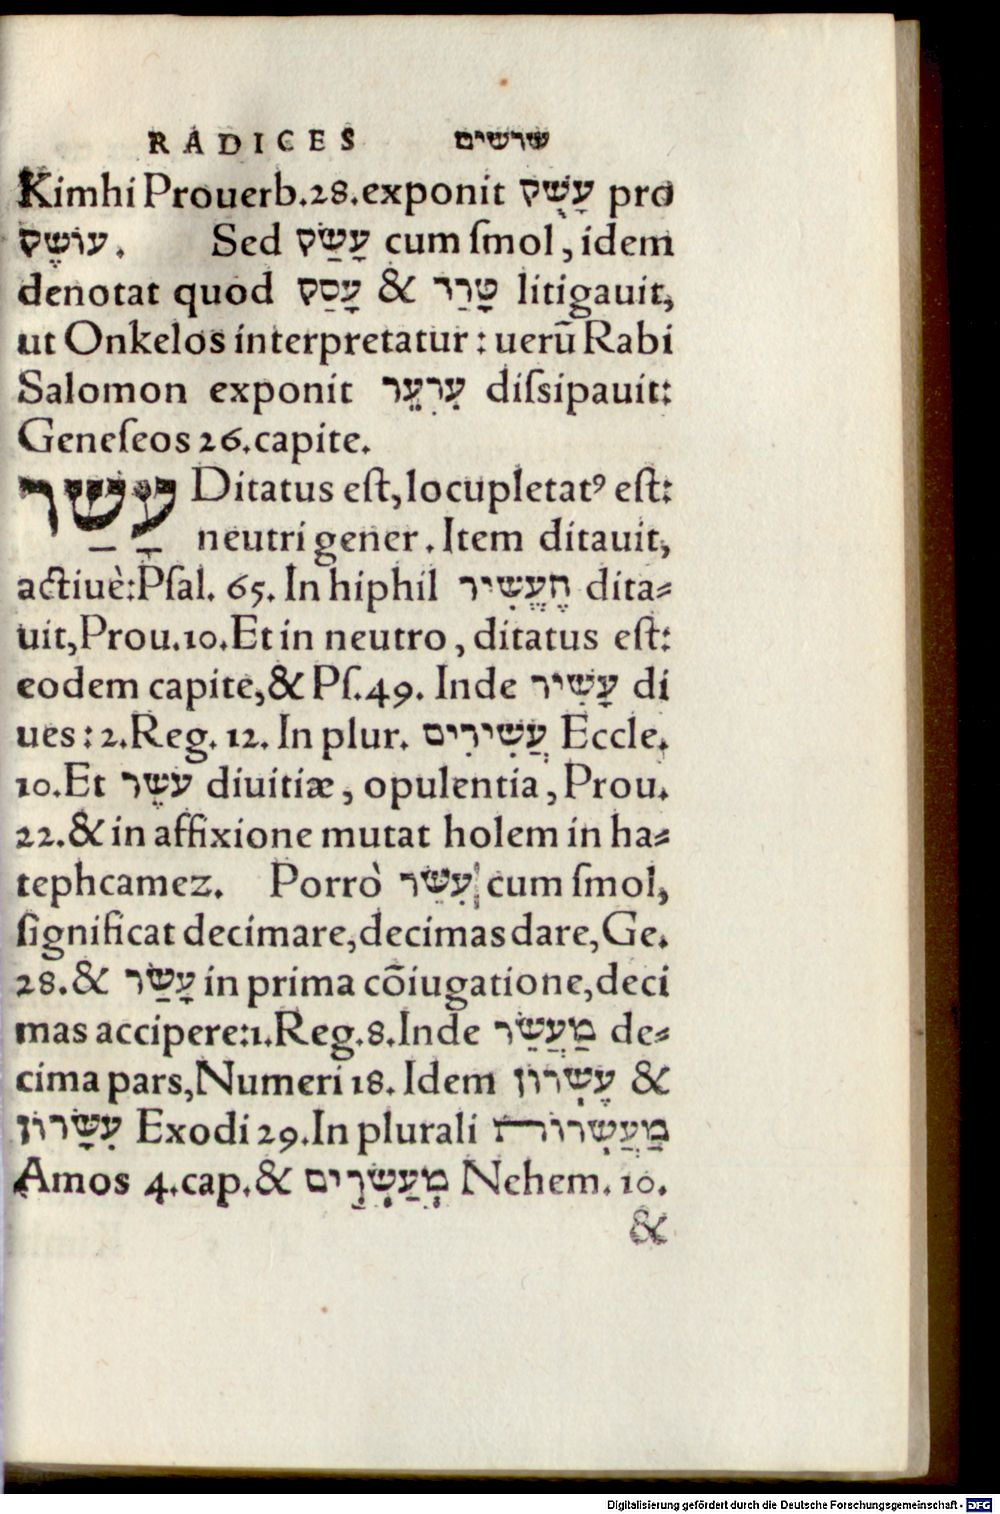 RADICES שרשים
Kimhi Prouerb.28.exponit עָשֻׁק pro
עוֹשֶׁק. Sed עָשַׂק cum ſmol, idem
denotat quod עָסַק & טָרַד litigauit,
ut Onkelos interpretatur: uerū Rabi
Salomon exponit עִרְעֵר diſsipauit:
Geneſeos 26.capite.
עָשַׁר Ditatus eſt, locupletatꝰ eſt:
neutri gener. Item ditauit,
actiuè: Pſal. 65. In hiphil הֶעֱשִׁיר dita⸗
uit, Prou.10. Et in neutro, ditatus eſt:
eodem capite, & Pſ.49. Inde עָשִׁיר di
ues: 2.Reg. 12. In plur. עֲשִׁירִים Eccle.
10. Et עֹשֶׁר diuitiæ, opulentia, Prou.
22. & in affixione mutat holem in ha⸗
tephcamez. Porrò עִשֵּׂר cum ſmol,
ſignificat decimare, decimas dare, Ge.
28. & עָשַׂר in prima cōiugatione, deci
mas accipere: 1.Reg.8. Inde מַעֲשַׂר de⸗
cima pars, Numeri 18. Idem עֶשְׂרוֹן &
עִשָּׂרוֹן Exodi 29. In plurali מַעֲשְׂרוֹת
Amos 4.cap. & מְעַשְּׂרִים Nehem. 10.
&
Digitalisierung gefördert durch die Deutsche Forschungsgemeinschaft - DFG